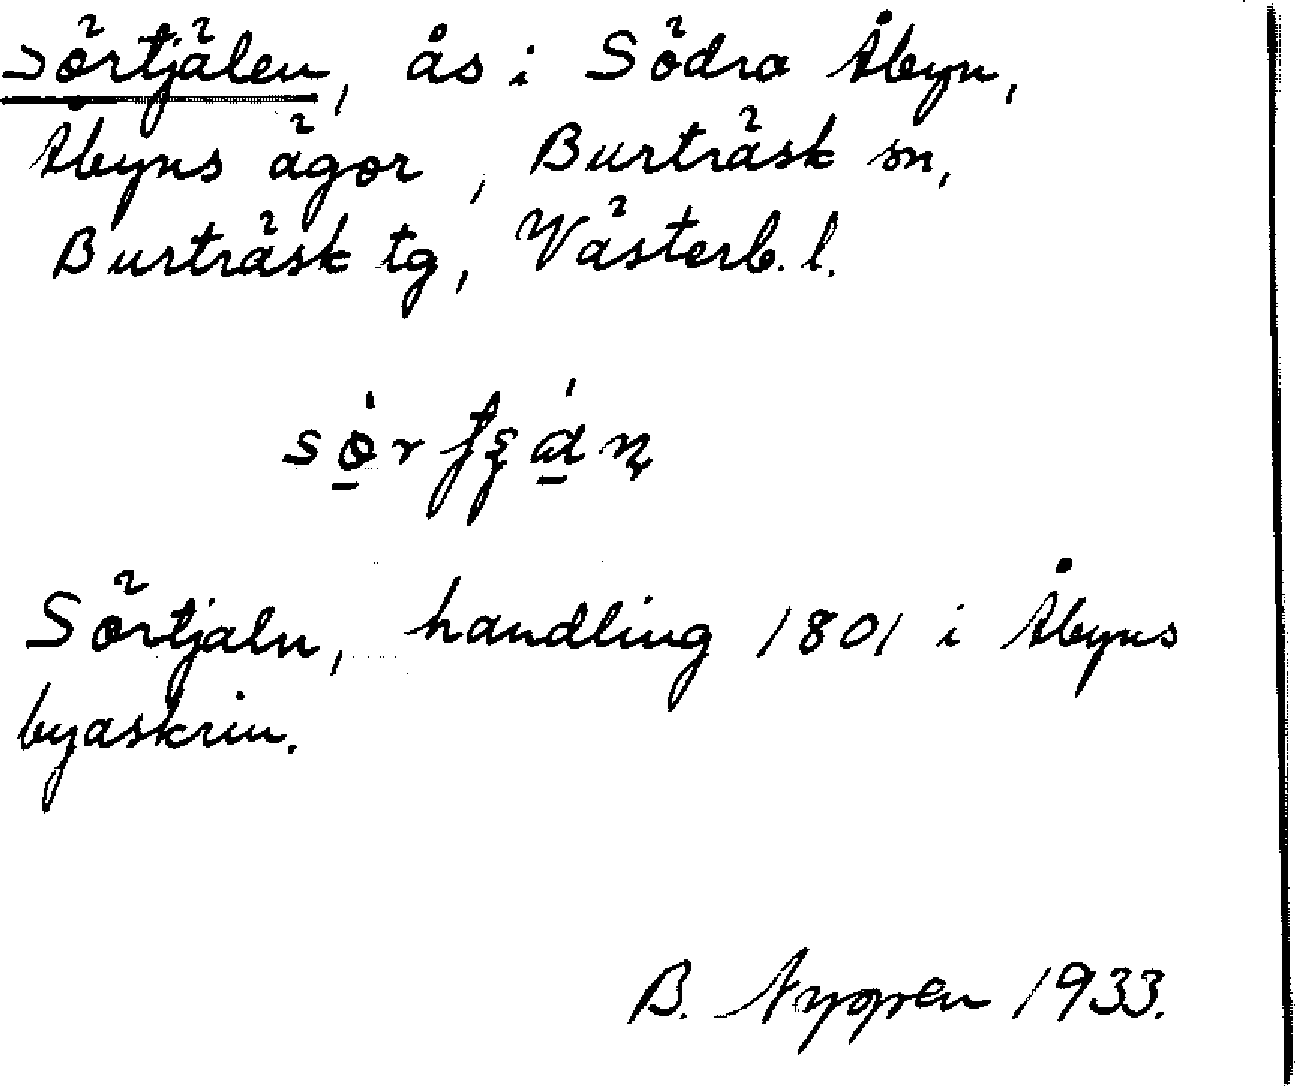 Sörtjälen, ås i Södra Åbyn,
Åbyns ägor, Burträsk sn,
Burträsk tg, Västerb. l.
Sörtjäln, handling 1801 i Åbyns
byaskrin.
B. Nygren 1933.